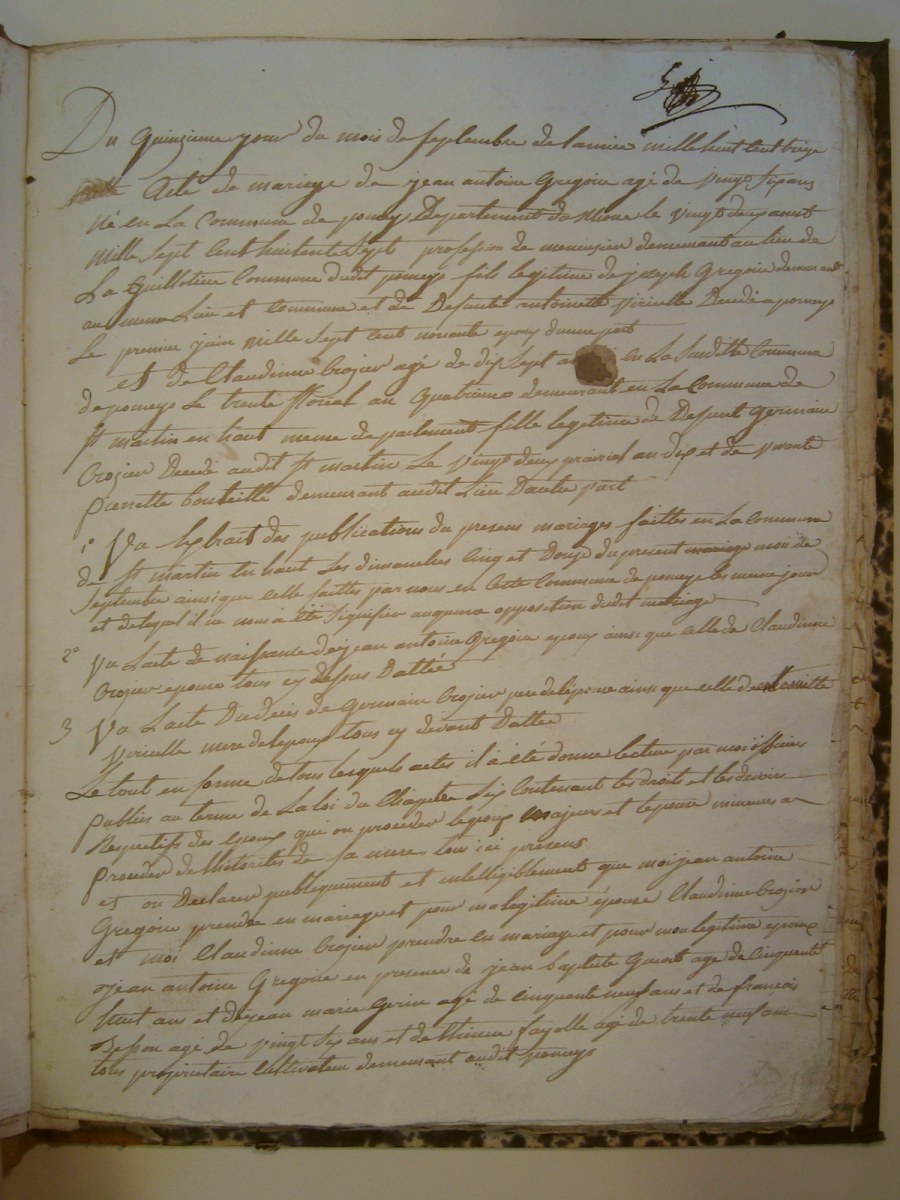 Du quinzieme jour du mois de Septembre de lannée mille huit cent treize
Acte de mariage de jean antoine Gregoire agé de vingt six ans
Né en La Commune de pomeys Departement du Rhone le vingt deux aout
Mille Sept Cent huitente Sept profession de menuisier demeurant au lieu de
La Guillotiere Commune dudit pomeys fils legitime de joseph Gregoire demeurant
au meme Lieu et Commune et de Defunte antoinette virielle Decedé a pomeys
Le premier juin Mille Sept Cent nonante epoux dune part
et de Claudinne Crozier agé de dix Sept a en La Susditte Commune
de pomeys Le trente floreal an quatrieme demeurant en La Commune de
St martin en haut meme departement fille legitime de Defunt Germain
Crozier Decedé audit St martin Le vingt deux prairial an dix et de vivante
Pierrette bouteille demeurant audit Lieu Dautre part
1° Vu Lextrait des publications du present mariages faittes en La Commune
de St martin en haut Les dimanches Cinq et Douze du present mariage mois de
Septembre ainsi que celle faittes par nous en Cette Commune de pomeys les meme jour
et delequel il ne nous à été Signifier auqunne opposition dudit mariage
2° Vu Lacte de naissance de jean antoine Gregoire epoux ainsi que celle de Claudinne
Crozier epouse tous cy dessus Dattée
3 Vu Lacte Dudecés de Germain Crozier pere delepouse ainsi que celle de antoinette
Virielle mere delepoux tous cy devant Dattée
Le tout en forme de tous lesquels actes il à été donné lecture par moi officier
Publics au terme de La loi du Chapitre Six Contenant les droits et les devoirs
Respectifs des epoux qui on proceder lepoux majeurs et lepouse mineures a
Proceder de Lotorité de Sa mere tous ici présent
et on Declarer publiquement et intelligiblement que moi jean antoine
Gregoire prendre en mariage et pour ma legitime épouse Claudinne Crozier
et moi Claudinne Crozier prendre en mariage et pour mon legitime epoux
jean antoine Gregoire en presence de jean baptiste agé de cinquente
huit ans et de jean marie Gerin agé de cinquante neuf ans et de francois
Besson agé de vingt Six ans et de Etienne fayolle agé de trente neuf ans
tous proprietaire Cultivateur demeurant audit pomeys